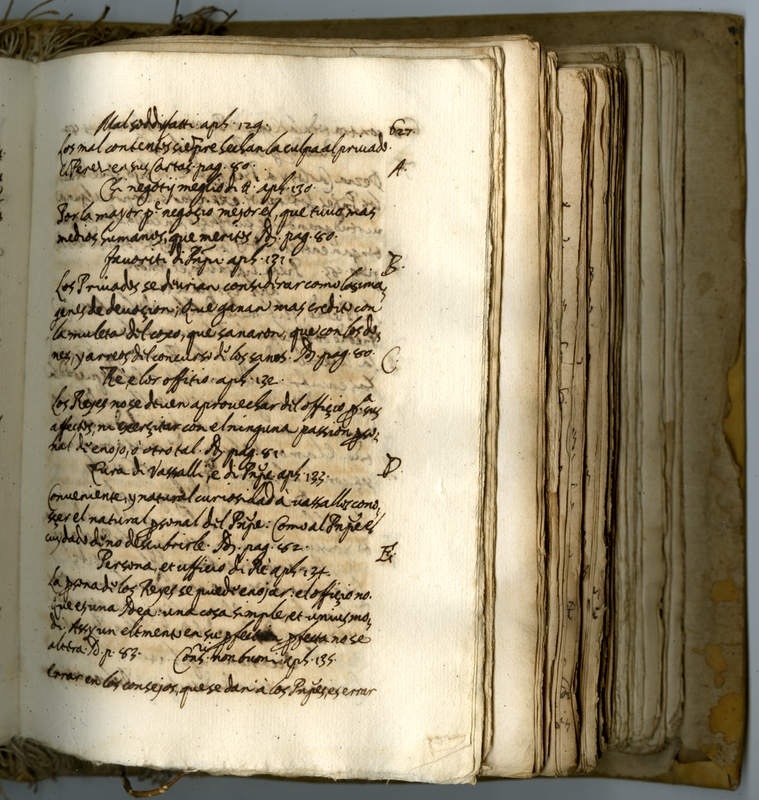 Mal sodisfatti. aph. 129.
627.
Los mal contentos siẽpre hechan la culpa al privado.
A. Perez en sus Cartas. pag. 80.
A.
Chi negotij meglio di tt.i aph. 130.
Por la mayor p.te negoçio mejor el, que tuvo mas
medios humanos, que meritos. Id. pag. 80.
favoriti di Prñpi. aph. 131.
B.
Los Privados se devrian considerar como las ima,
genes de devoçion; Que ganan mas credito con
la muleta del coxo, que sanaron, que con los do,
nes, y arreos del concurso de los sanos. Id. pag. 80.
C.
Rè e lor offitio. aph. 132.
Los Reyes no se deven aprovechar del offiçio p.a sus
affectos, ni exerçitar con el ninguna passion p̃so,
nal de enojo, o otro tal. Id. pag. 81
Cura di Vassalli, e di Prñpe aph. 133.
D.
Conveniente, y natural curiosidad à vassallos cono,
sçer el natural p̃sonal del Prñpe: Como al Prñpe el
cuydado de no descubrirle. Id. pag. 82.
E.
Persona, et ufficio di Rè aph. 134.
La p̃sona de los Reyes se puede enojar: el offiçio no.
Que es una Idea: una cosa simple, et unius mo,
di. Assy un elemento en su p̃fection p̃fecta no se
altera. Id. p. 83.
Cons.ri non buoni. aph. 135.
Errar en los consejos, que se dan à los Prñpes, es errar